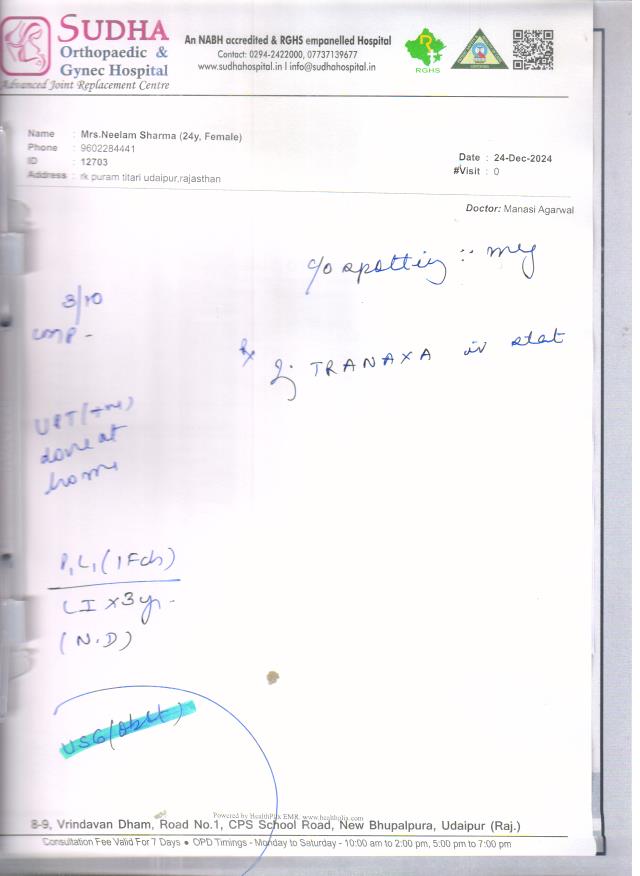 SUDHA
Orthopaedic &
Gynec Hospital
Advanced Joint Replacement Centre
An NABH accredited & RGHS empanelled Hospital
Contact: 0294-2422000, 07737139677
www.sudhahospital.in I info@sudhahospital.in
RGHS
Name : Mrs.Neelam Sharma (24y, Female)
Phone : 9602284441
ID : 12703
Address : rk puram titari udaipur,rajasthan
Date : 24-Dec-2024
#Visit : 0
Doctor: Manasi Agarwal
c/o spotting ::
3/10
LMP -
Rx
Inj TRANAXA iv stat
UPT(+ve)
done at
home
P1L1 (1Fch)
LI x 3yr.
(N.D)
USG(
Powered by HealthPlix EMR. www.healthplix.com
8-9, Vrindavan Dham, Road No.1, CPS School Road, New Bhupalpura, Udaipur (Raj.)
Consultation Fee Valid For 7 Days ● OPD Timings - Monday to Saturday - 10:00 am to 2:00 pm, 5:00 pm to 7:00 pm